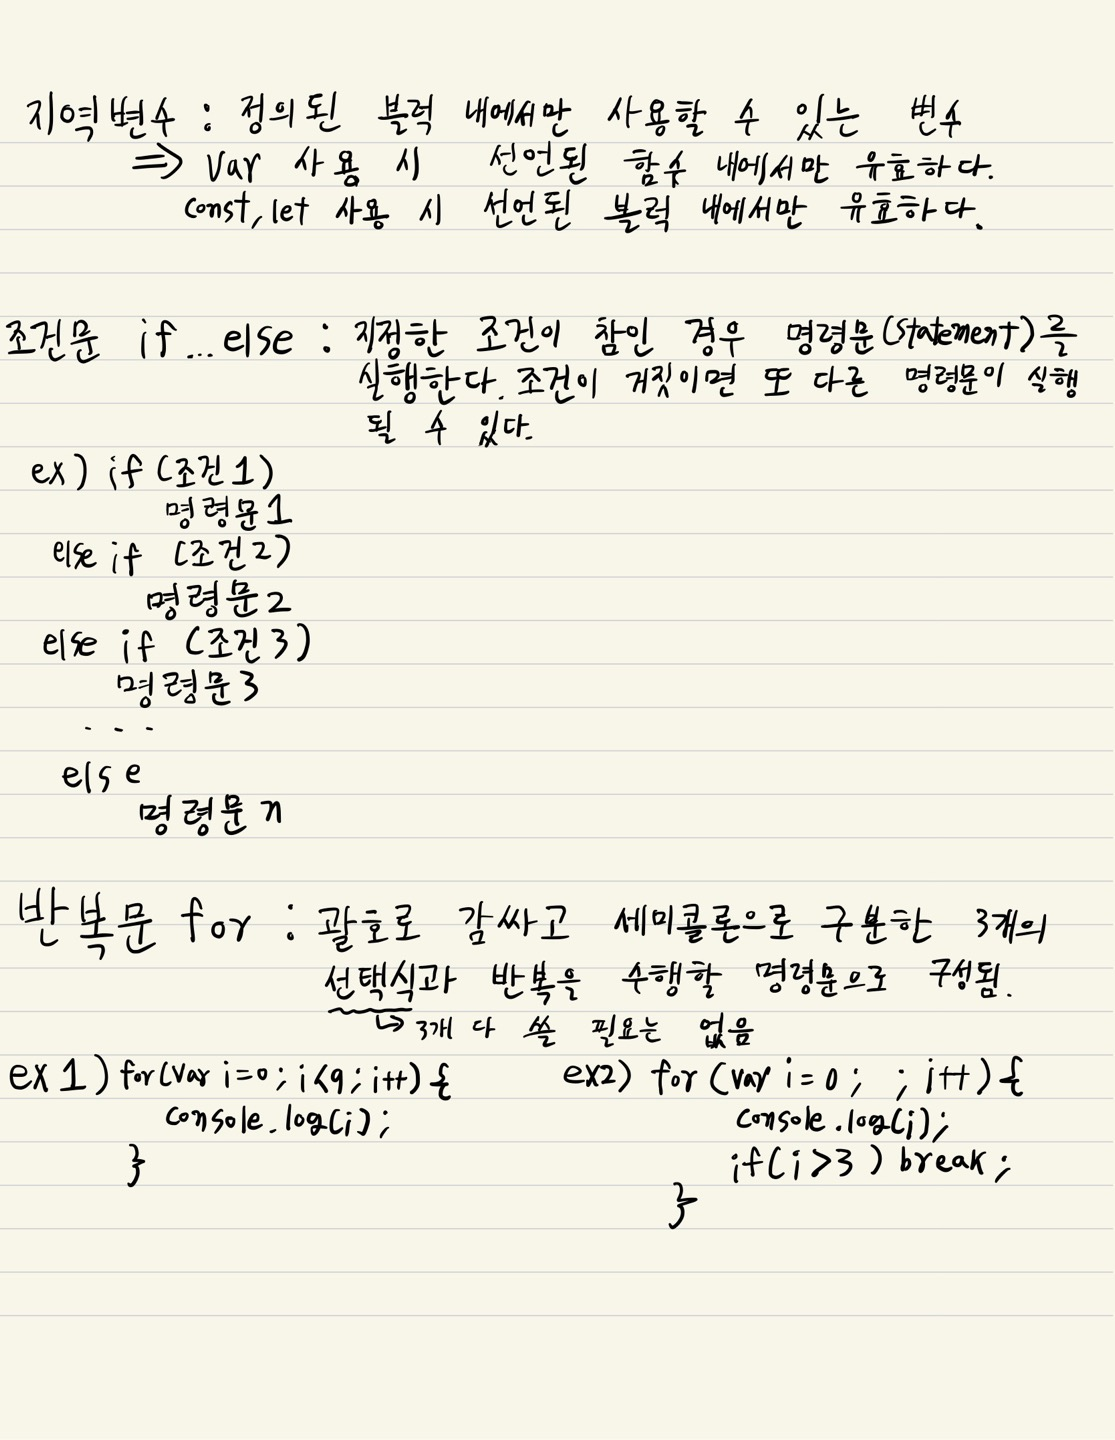 지역변수 : 정의된 블럭 내에서만 사용할 수 있는 변수
⇒ var 사용 시 선언된 함수 내에서만 유효하다.
const, let 사용 시 선언된 블럭 내에서만 유효하다.
조건문 if...else : 지정한 조건이 참인 경우 명령문(statement)를
실행한다. 조건이 거짓이면 또 다른 명령문이 실행
될 수 있다.
ex) if (조건1)
명령문1
else if (조건2)
명령문2
else if (조건3)
명령문3
...
else
명령문n
반복문 for : 괄호로 감싸고 세미콜론으로 구분한 3개의
선택식과 반복을 수행할 명령문으로 구성됨.
↳ 3개 다 쓸 필요는 없음
ex1) for(var i=0; i<9; i++) {
console.log(i);
}
ex2) for (var i=0; ; i++) {
console.log(i);
if(i>3) break;
}